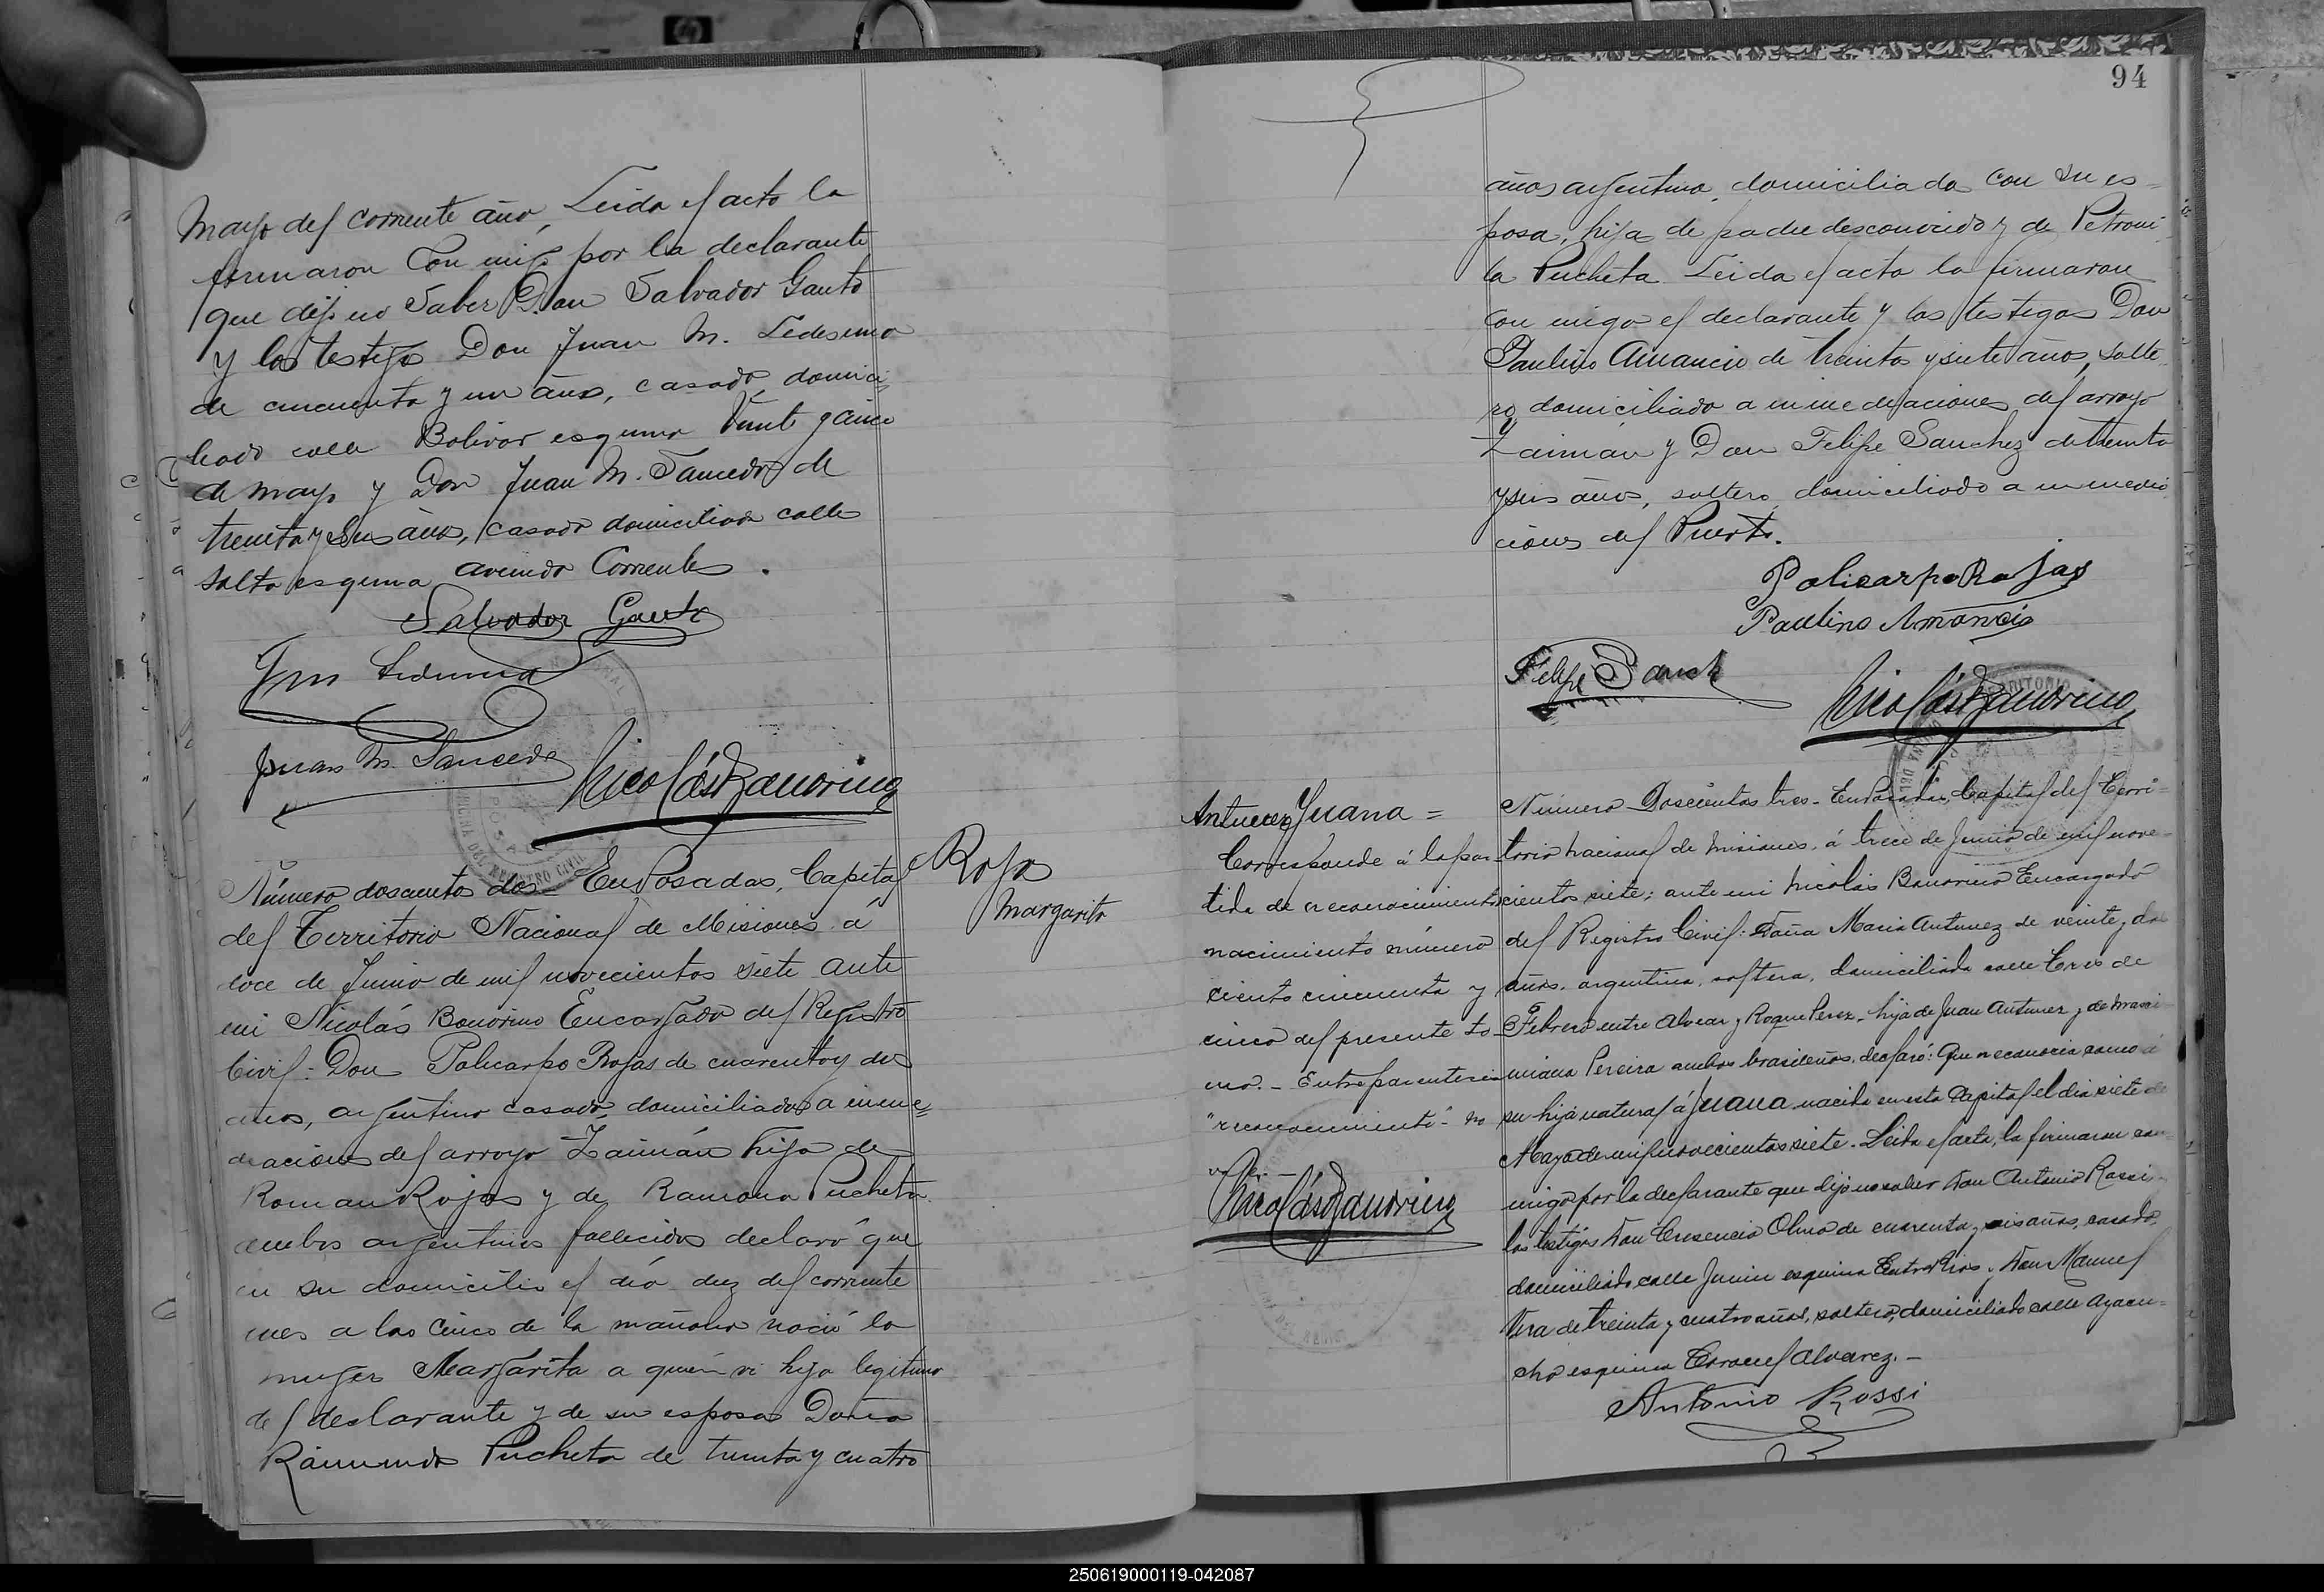 Mayo del corriente año, Leida el acto la
firmaron con migo por la declarante
que dijo no Saber Don Salvador Gauto
y los testigos Don Juan M. Ledesma
de cincuenta y un años, casado domici
liado calle Bolivar esquina Veinte y cinco
de mayo y Don Juan M. Saucedo de
treinta y seis años, casado domiciliado calle
Salta esquina avenida Corrientes.
Salvador Gauto
Jn m Ledesma
Juan M. Saucedo
Nicolás Bonorino
Rojas
Margarita
Número doscientos dos En Posadas, Capital
del Territorio Nacional de Misiones á
doce de Junio de mil novecientos siete ante
mi Nicolás Bonorino Encargado del Registro
Civil: Don Policarpo Rojas de cuarenta y dos
años, argentino casado, domiciliado a inme=
diaciones del arroyo Zaimán hijo de
Roman Rojas y de Ramona Pucheta
ambos argentinos fallecidos declaró que
en su domicilio el día diez del corriente
mes a las cinco de la mañana nació la
mujer Margarita a quien vi hija legitima
del declarante y de su esposa Doña
Raimunda Pucheta de treinta y cuatro
94
años argentina, domiciliada con su es=
posa, hija de padre desconocido y de Petroni
la Pucheta Leida el acta la firmaron
con migo el declarante y los testigos Don
Paulino Amancio de treinta y siete años, solte
ro domiciliado a inmediaciones del arroyo
Zaimán y Don Felipe Sanchez de treinta
y seis años, soltero domiciliado a inmedia
ciones del Puerto.
Policarpo Rojas
Paulino Amancio
Felipe Sanch
Nicolás Bonorino
Antunez Juana =
Corresponde á la par
tida de reconocimiento
nacimiento número
ciento cincuenta y
cinco del presente to
mo. - Entre parentesis
"reconocimiento" - no
vale. -
Nicolás Bonorino
Número Doscientos tres - En Posadas, Capital del Terri=
torio nacional de Misiones, á trece de Junio de mil nove=
cientos siete; ante mi Nicolás Bonorino Encargado
del Registro Civil: Doña Maria Antunez de veinte y dos
años, argentina, soltera, domiciliada calle Tres de
Febrero entre Alvear y Roque Perez - hija de Juan Antunez y de Maxi
miana Pereira ambos brasileños, declaró: Que reconocia como á
su hija natural á Juana nacida en esta Capital el dia siete de
Mayo de mil novecientos siete. Leida el acta, la firmaron con
migo por la declarante que dijo no saber Don Antonio Rossi
los testigos Don Cresencio Olmo de cuarenta y seis años, casado,
domiciliado calle Junin esquina Entre Rios y Don Manuel
Vera de treinta y cuatro años, soltero, domiciliado calle Ayacu=
cho esquina Coronel Alvarez. -
Antonio Rossi
250619000119-042087